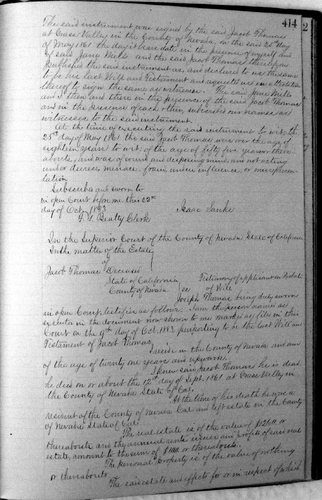 414
2
The said instrument was signed by the said Jacob Thomas
at Grass Valley in the County of Nevada, on the said 25th day
of May 1861 the day it bears date in the presence of myself and
of said Jane Mills and the said Jacob Thomas thereupon
published the said instrument as, and declared to us the same
to be his last Will and Testament and requested us in attestation
thereof to sign the same as witnesses. The said Jane Mills
and I then and there in the presence of the said Jacob Thomas
and in the presence of each other subscribed our names as
witnesses to the said instrument.
At the time of executing the said instrument to wit the
25th day of May 1861 the said Jacob Thomas was over the age of
eighteen years to wit of the age of fifty five years or there
abouts, and was of sound and disposing mind and not acting
under duress menace fraud undue influence, or misrepresen-
tation
Subscribed and sworn to
in open Court before me this 22nd
day of Oct 1883
Beatty Clerk
Isaac
In the Superior Court of the County of Nevada State of California
In the matter of the Estate
of
Jacob Thomas Deceased
State of California
County of Nevada
Testimony of applicant on Probate
of Will
Joseph Thomas, being duly sworn
in open Court, testifies as follows: I am the person named as
executor in the document now shown to me marked as filed in this
Court on the 9th day of Oct. 1883 purporting to be the last Will and
Testament of Jacob Thomas.
I reside in the County of Nevada and am
of the age of twenty one years and upwards
I knew said Jacob Thomas, he is dead
he died on or about the 12th day of Sept. 1861 at Grass Valley in
the County of Nevada State of Cal.
At the time of his death he was a
resident of the County of Nevada Cal and left estate in the County
of Nevada State of Cal.
The real estate is of the value of
thereabouts and the annual rents issues and profits of said real
estate, amount to the sum of $100 or thereabouts.
The personal property is of the value of nothing
or thereabouts
The said estate and effects for or in respect of which